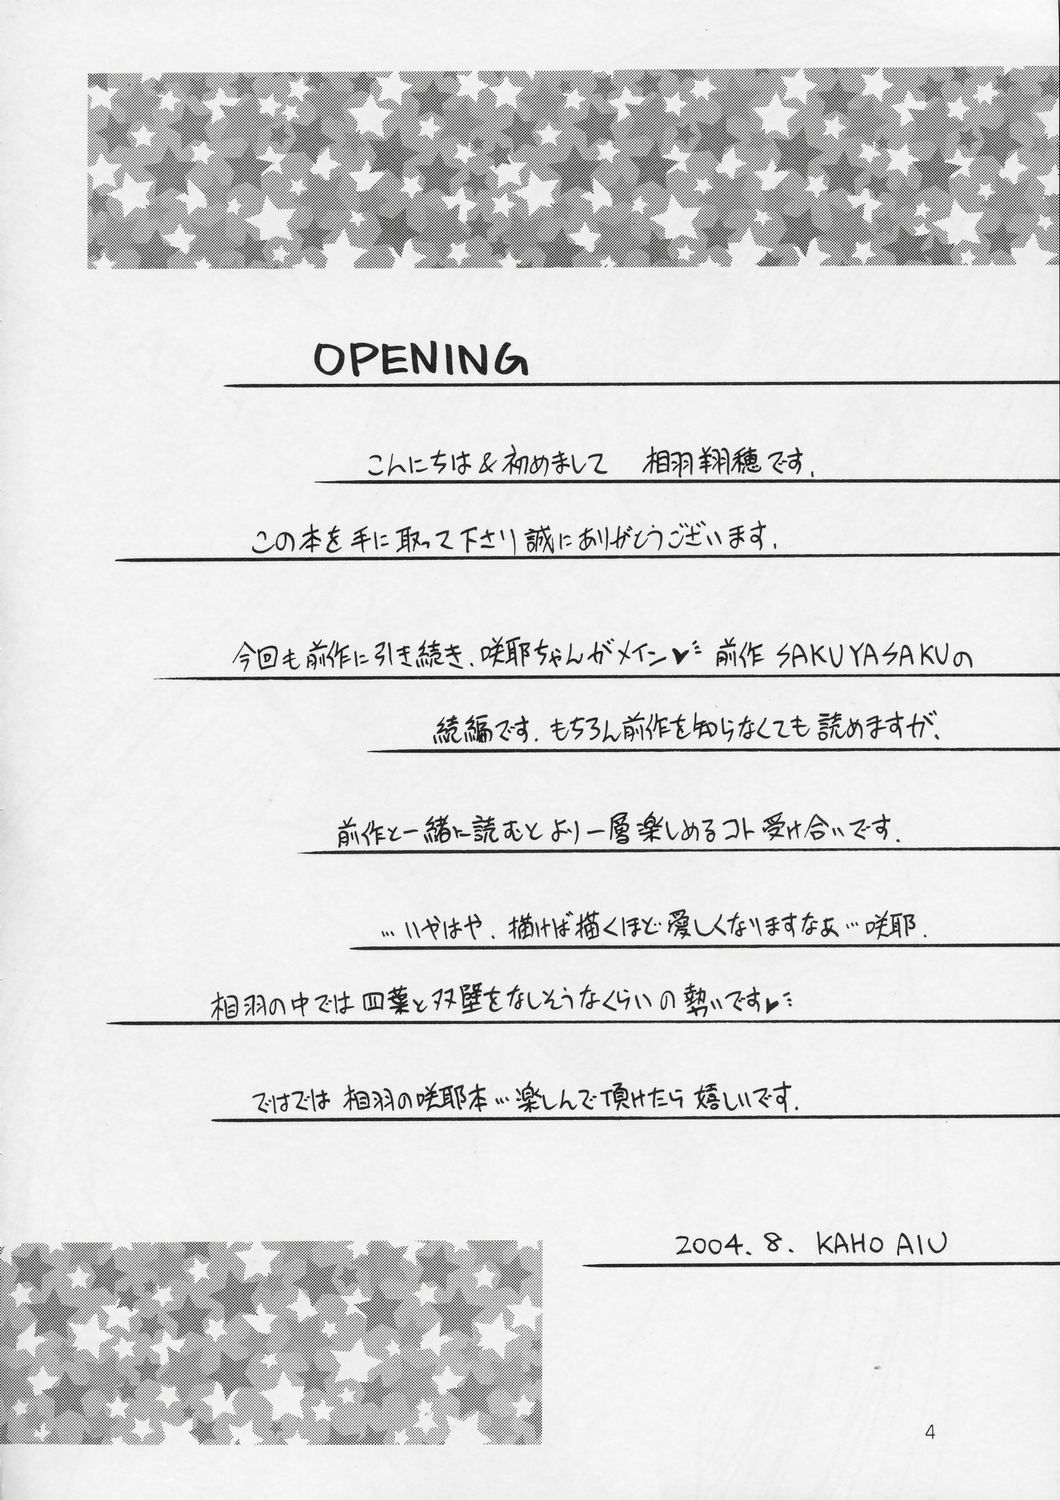 OPENING
こんにちは & 初めまして 相羽翔穂です.
この本を手に取って下さり誠にありがとうございます.
今回も前作に引き続き、咲耶ちゃんがメイン♥ 前作 SAKUYASAKUの
続編です. もちろん前作を知らなくても読めますが、
前作と一緒に読むとより一層楽しめるコト受け合いです.
…いやはや、描けば描くほど愛しくなりますなぁ…咲耶.
相羽の中では四葉と双璧をなしそうなくらいの勢いです♥
ではでは 相羽の咲耶本…楽しんで頂けたら嬉しいです.
2004. 8. KAHO AIU
4